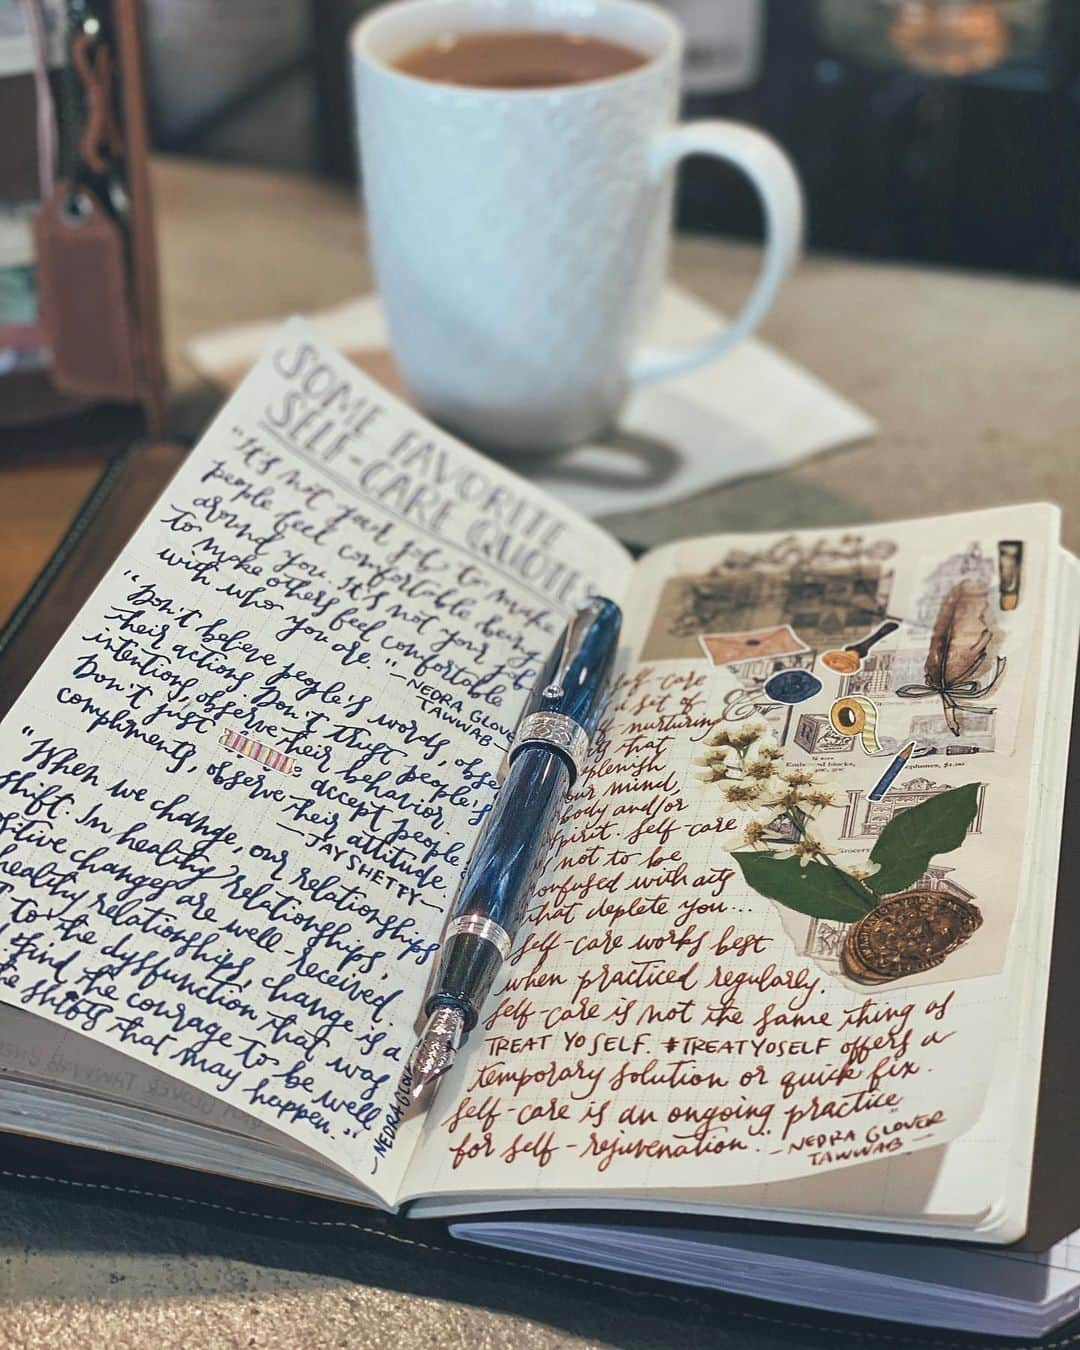 SOME FAVORITE
SELF-CARE QUOTES
"It's not your job to make
people feel comfortable being
around you. It's not your job
to make others feel comfortable
with who you are."
—NEDRA GLOVER
TAWWAB—
"Don't believe people's words, observe
their actions. Don't trust people's
intentions, observe their behavior.
Don't just accept people's
compliments, observe their attitude.
—JAY SHETTY—
"When we change, our relationships
shift. In healthy relationships,
positive changes are well-received.
relationships, change is a
to the dysfunction that was
find the courage to be well
the shifts that may happen."
—NEDRA GLOV
self-care
set of
self-nurturing
that
replenish
your mind,
body and/or
spirit. Self-care
is not to be
confused with acts
that deplete you...
Self-care works best
when practiced regularly.
Self-care is not the same thing as
TREAT YO SELF. #TREATYOSELF offers a
temporary solution or quick fix.
Self-care is an ongoing practice
for self-rejuvenation."
—NEDRA GLOVER
TAWWAB—